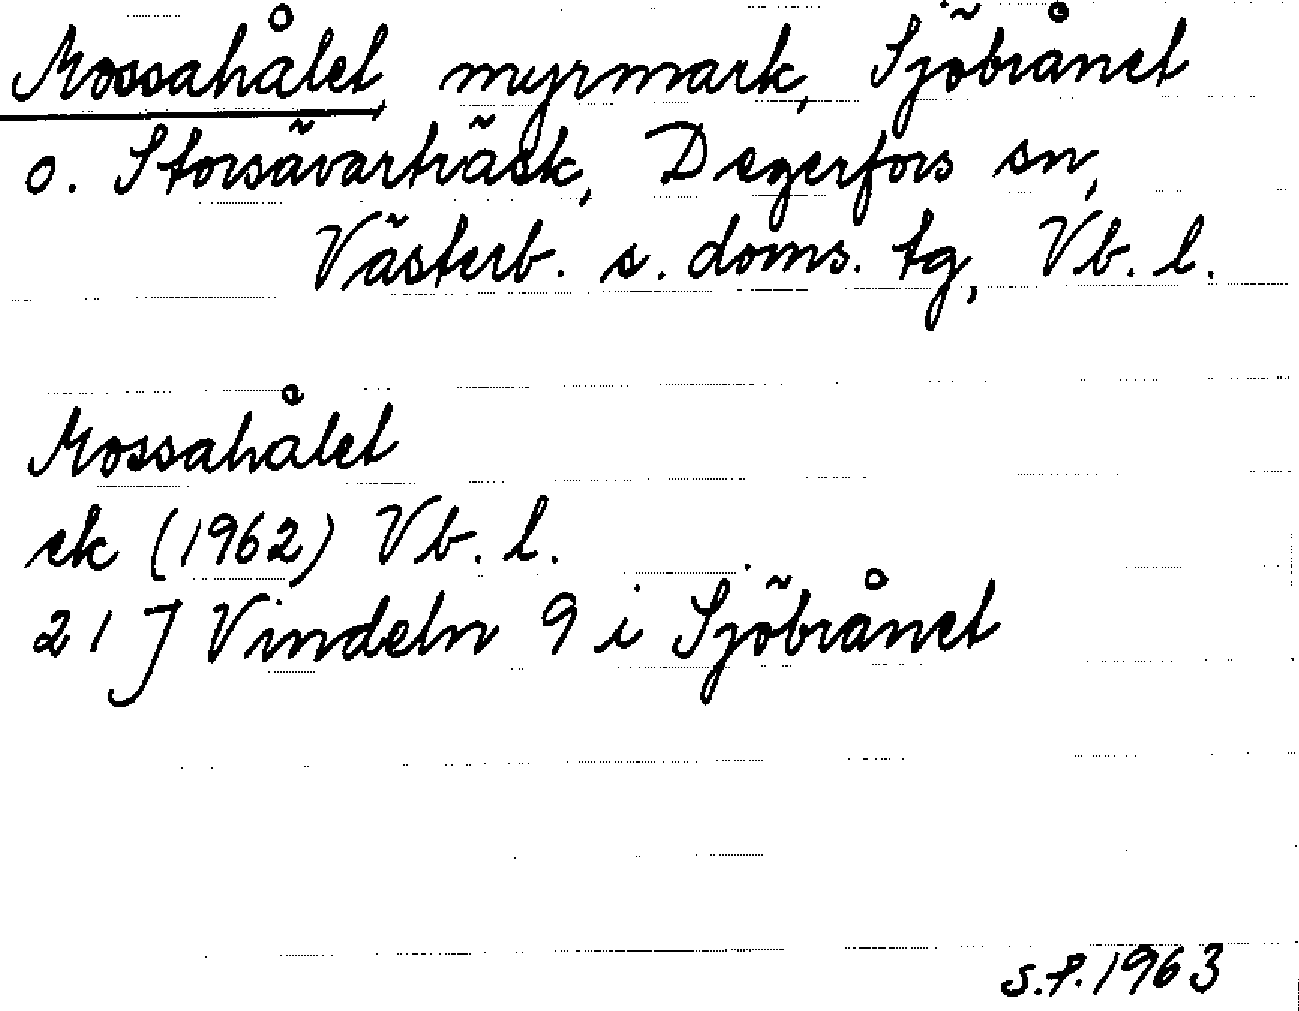 Mossahålet, myrmark, Sjöbrånet
o. Storsävarträsk, Degerfors sn,
Västerb. s. doms. tg, Vb. l.
Mossahålet
ek (1962) Vb. l.
21 J Vindeln 9 i Sjöbrånet
S.P. 1963